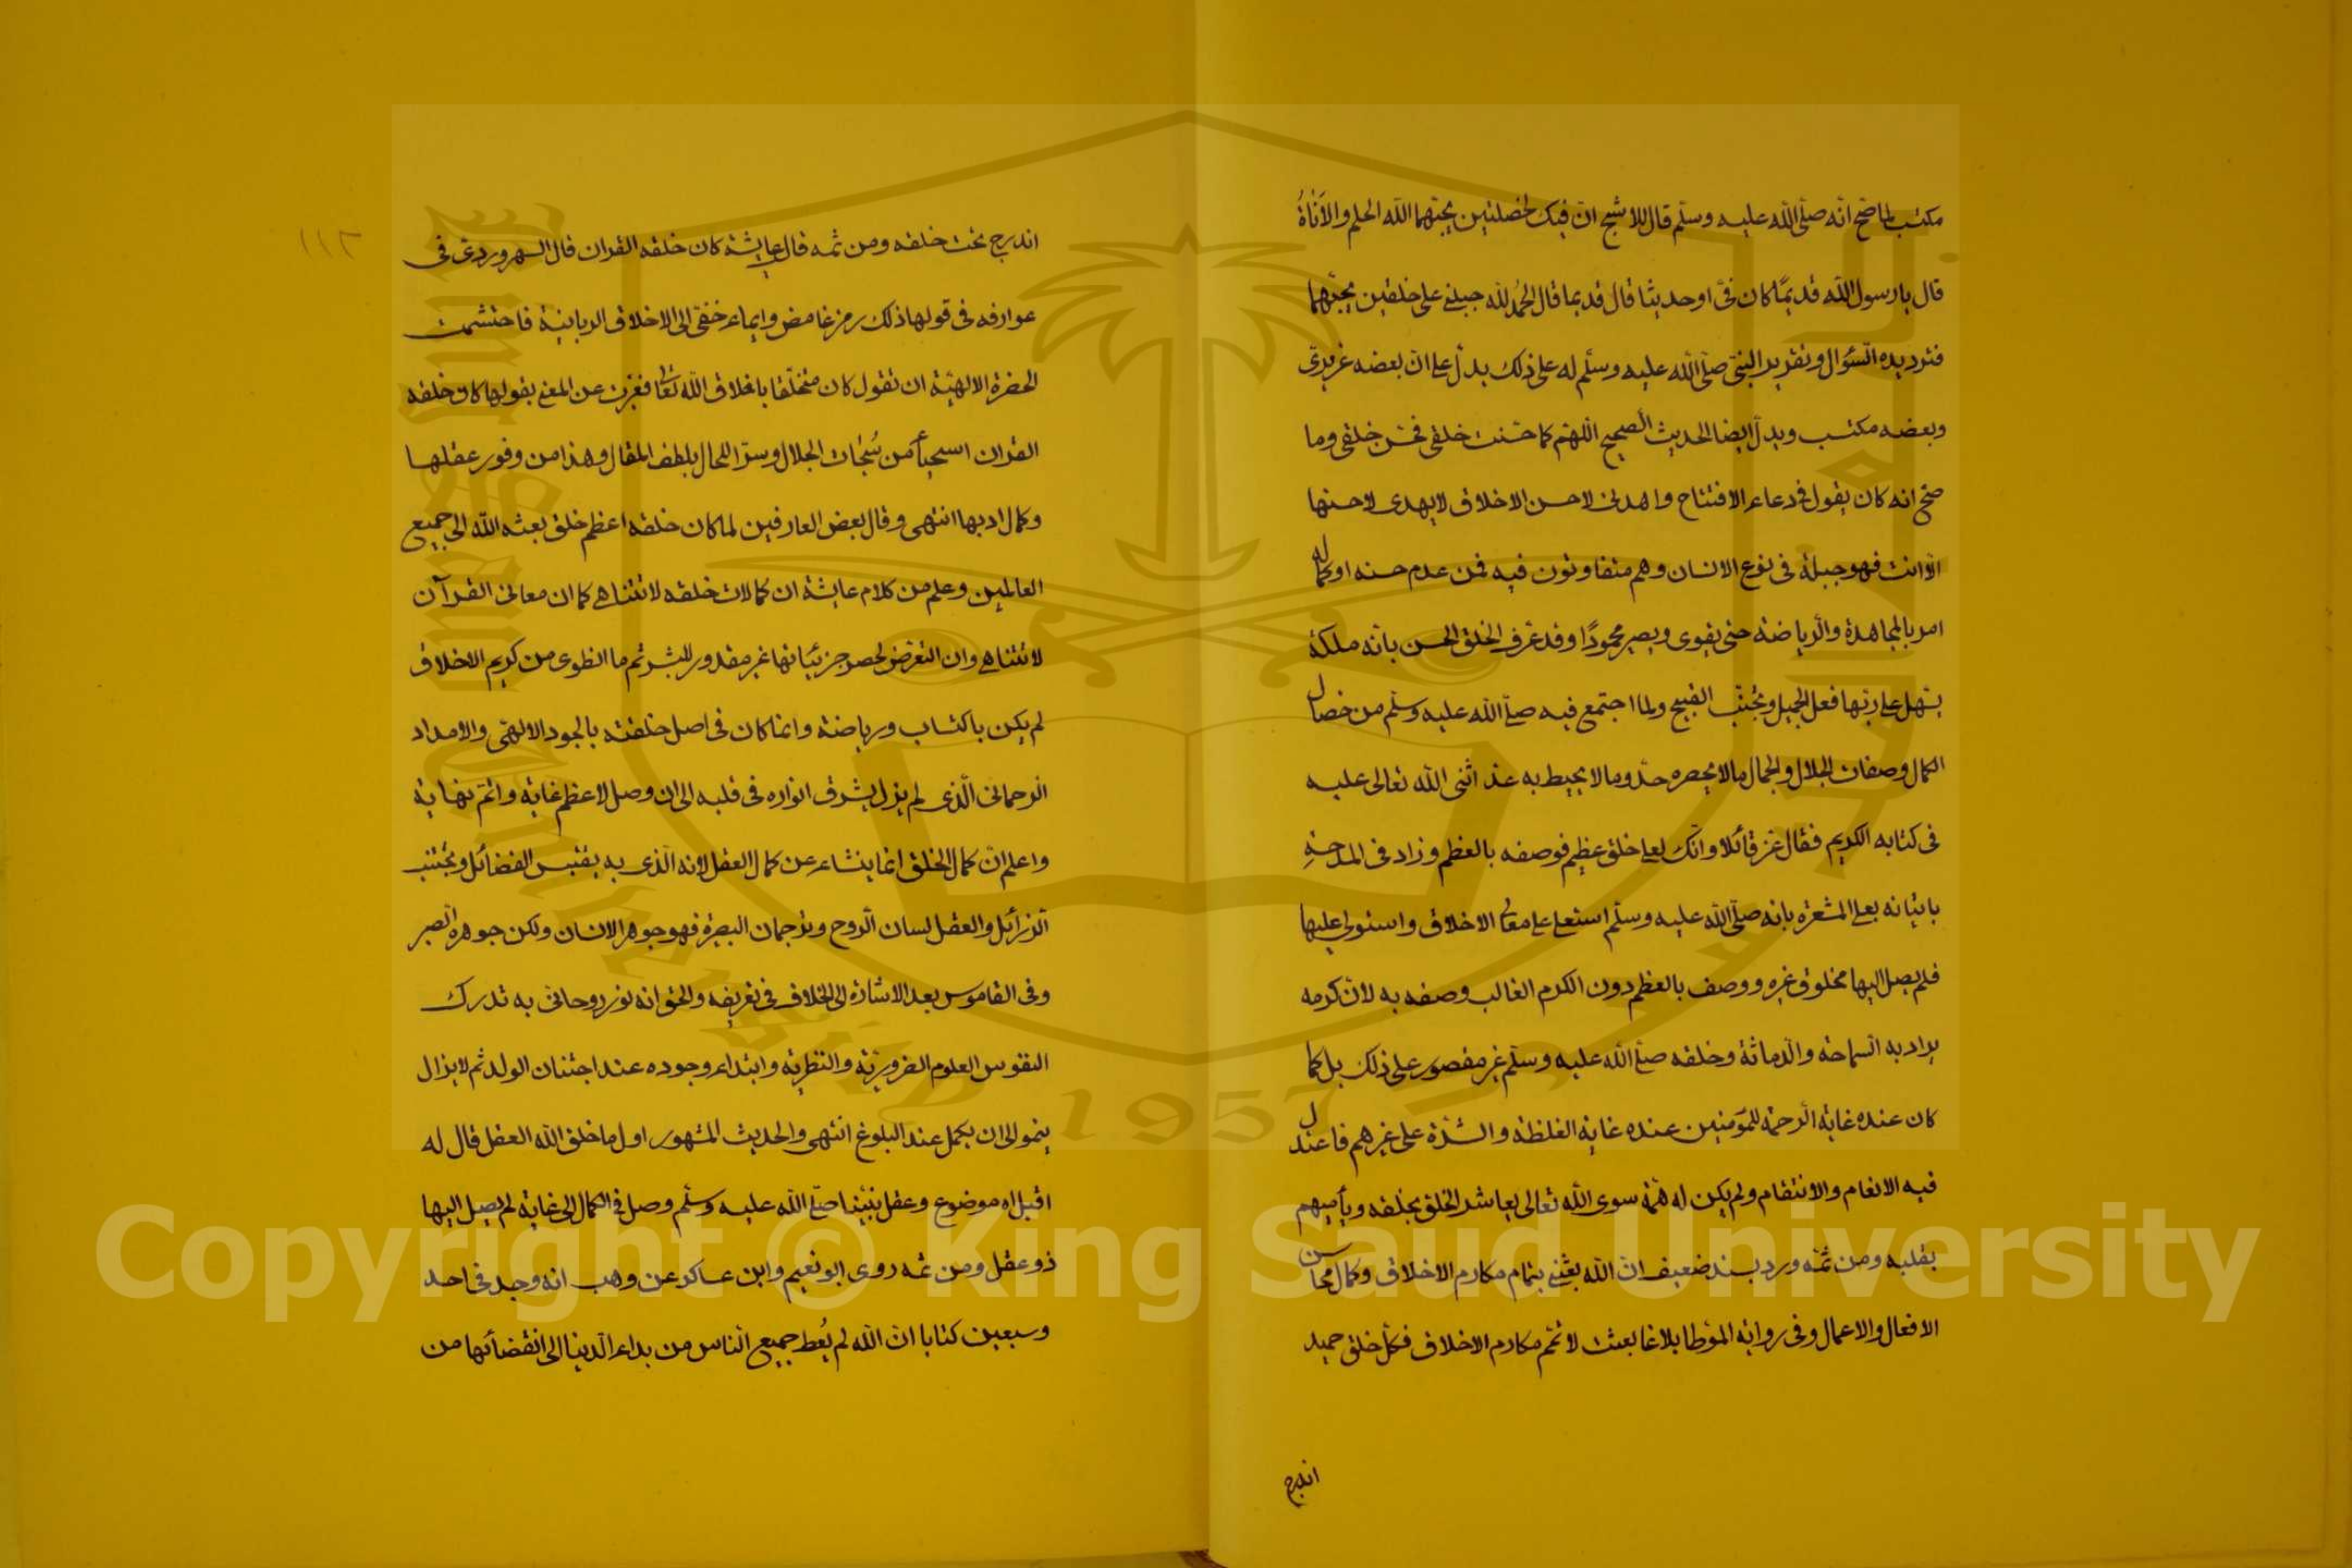 مكتسب لما صح انه صلى الله عليه وسلم قال للاشج ان فيك لخصلتين يحبهما الله الحلم والاَناةُ
قال يا رسول الله قديمًا كان فيّ او حديثا قال قديما قال الحمُد لله جبلني على خلقين يحبّهما
فترديده السّؤال وتقرير النبى صلّى الله عليه وسلّم له على ذلك يدل على انّ بعضه غريزىّ
وبعضه مكتسب ويدلّ ايضا الحديث الصحيح اللّهمّ كما حسّنت خلقى فحسّن خلقى وما
صحّ انه كان يقول فى دعاء الافتتاح واهدنى لاحسن الاخلاق لا يهدى لاحسنها
الّا انت فهو جبلة فى نوع الانسان وهم متفاوتون فيه فمن عدم حسنه او كماله
امر بالمجاهدة والرّياضة حتى يقوى ويصير محمودًا وقد عرف الخلق الحسن بانّه ملكة
يسهل على ربّها فعل الجميل وتجنّب القبيح ولما اجتمع فيه صلّى الله عليه وسلّم من خصال
الكمال وصفات الجلال والجمال مالا يحصره حدّ وما لا يحيط به عدّ اثنى الله تعالى عليه
فى كتابه الكريم فقال عزّ قائلا وانّك لعلى خلق عظيم فوصفه بالعظم وزاد فى المدحة
باتيانه بعلى المشعرة بانه صلّى الله عليه وسلّم استعلى على معالى الاخلاق واستولى عليها
فلم يصل اليها مخلوق غيره ووصف بالعظم دون الكرم الغالب وصفه به لانّ كرمه
يراد به السّماحة والدّماثة وخلقه صلّى الله عليه وسلّم غير مقصور على ذلك بل كما
كان عنده غاية الرّحمة للمؤمنين عنده غاية الغلظة والشّدّة على غيرهم فاعتدل
فيه الانعام والانتقام ولم يكن له همّة سوى الله تعالى يعاشر الخلق بخلقه ويباينهم
بقلبه ومن ثمّه ورد بسند ضعيف انّ الله بعثنى بتمام مكارم الاخلاق وكمال محاسن
الافعال والاعمال وفى رواية الموّطا بلاغا بعثت لاتمّم مكارم الاخلاق فكلّ خلق حميد
اندرج
١١٢
اندرج تحت خلقه ومن ثمه قال عايشة كان خلقه القران قال السهروردى فى
عوارفه فى قولها ذلك رمز غامض وايماء خفىّ الى الاخلاق الربانية فاحتشمت
الحضرة الالهيّة ان تقول كان متخلّقا باخلاق الله تعالى فعبّرت عن المعنى بقولها كان خلقه
القران استحيأ من سُبُحات الجلال وسترا للحال بلطف المقال وهذا من وفور عقلها
وكمال ادبها انتهى وقال بعض العارفين لما كان خلقه اعظم خلق بعثه الله الى جميع
العالمين وعلم من كلام عايشة ان كمالات خلقه لا تتناهى كما ان معانى القرآن
لا تتناهى وان التعرّض لحصر جزئيّاتها غير مقدور للبشر ثم ما انطوى من كريم الاخلاق
لم يكن باكتساب ورياضة وانما كان فى اصل خلقته بالجود الالهّى والامداد
الرحمانىّ الّذى لم يزل يشرق انواره فى قلبه الى ان وصل لاعظم غاية واتمّ نهاية
واعلم انّ كمال الخلق انما ينشاء عن كمال العقل لانه الّذى به يقتبس الفضائل ويجتنب
الرّذائل والعقل لسان الرّوح وترجمان البصيرة فهو جوهر الانسان ولكن جوهره الصّبر
وفى القاموس بعد الاشارة الى الخلاف فى تعريفه والحق انه نور روحانىّ به تدرك
النفوس العلوم الضروريّة والنظريّة وابتداء وجوده عند اجتنان الولد ثم لا يزال
ينمو الى ان يكمل عند البلوغ انتهى والحديث المشهور اول ما خلق الله العقل قال له
اقبل اه موضوع وعقل نبيّنا صلّى الله عليه وسلّم وصل فى الكمال الى غاية لم يصل اليها
ذو عقل ومن ثمه روى ابو نعيم وابن عساكر عن وهب انه وجد فى احد
وسبعين كتابا انّ الله لم يُعط جميع النّاس من بداء الدّنيا الى انقضائها من
King Saud University
1957
Copyright © King Saud University